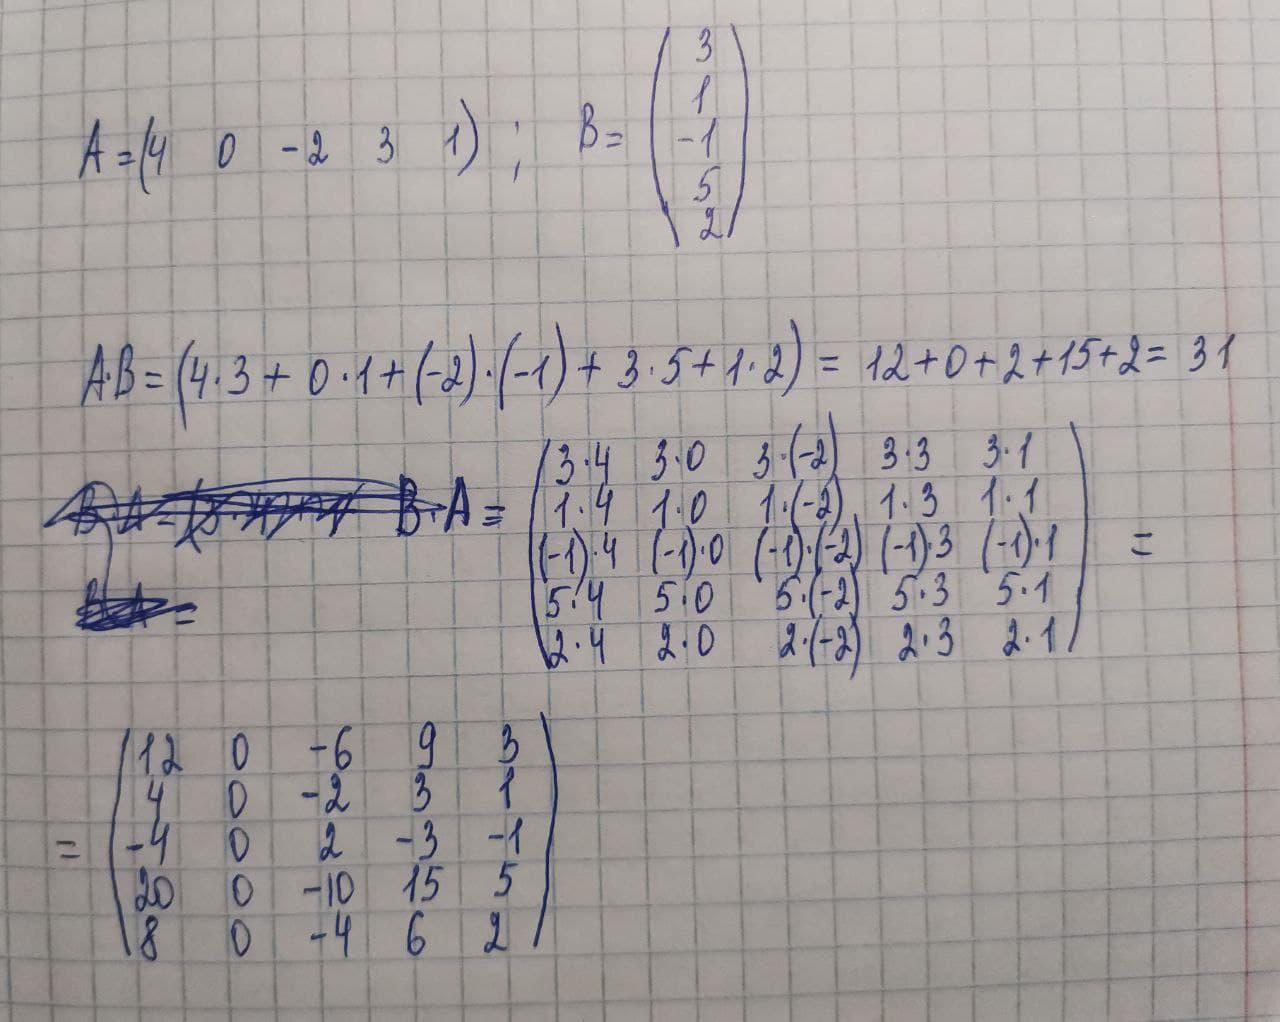 A = (4 0 -2 3 1) ; B = (3
1
-1
5
2)
A·B = (4·3 + 0·1 + (-2)·(-1) + 3·5 + 1·2) = 12+0+2+15+2 = 31
B·A = (3·4 3·0 3·(-2) 3·3 3·1
1·4 1·0 1·(-2) 1·3 1·1
(-1)·4 (-1)·0 (-1)·(-2) (-1)·3 (-1)·1
5·4 5·0 5·(-2) 5·3 5·1
2·4 2·0 2·(-2) 2·3 2·1) =
= (12 0 -6 9 3
4 0 -2 3 1
-4 0 2 -3 -1
20 0 -10 15 5
8 0 -4 6 2)